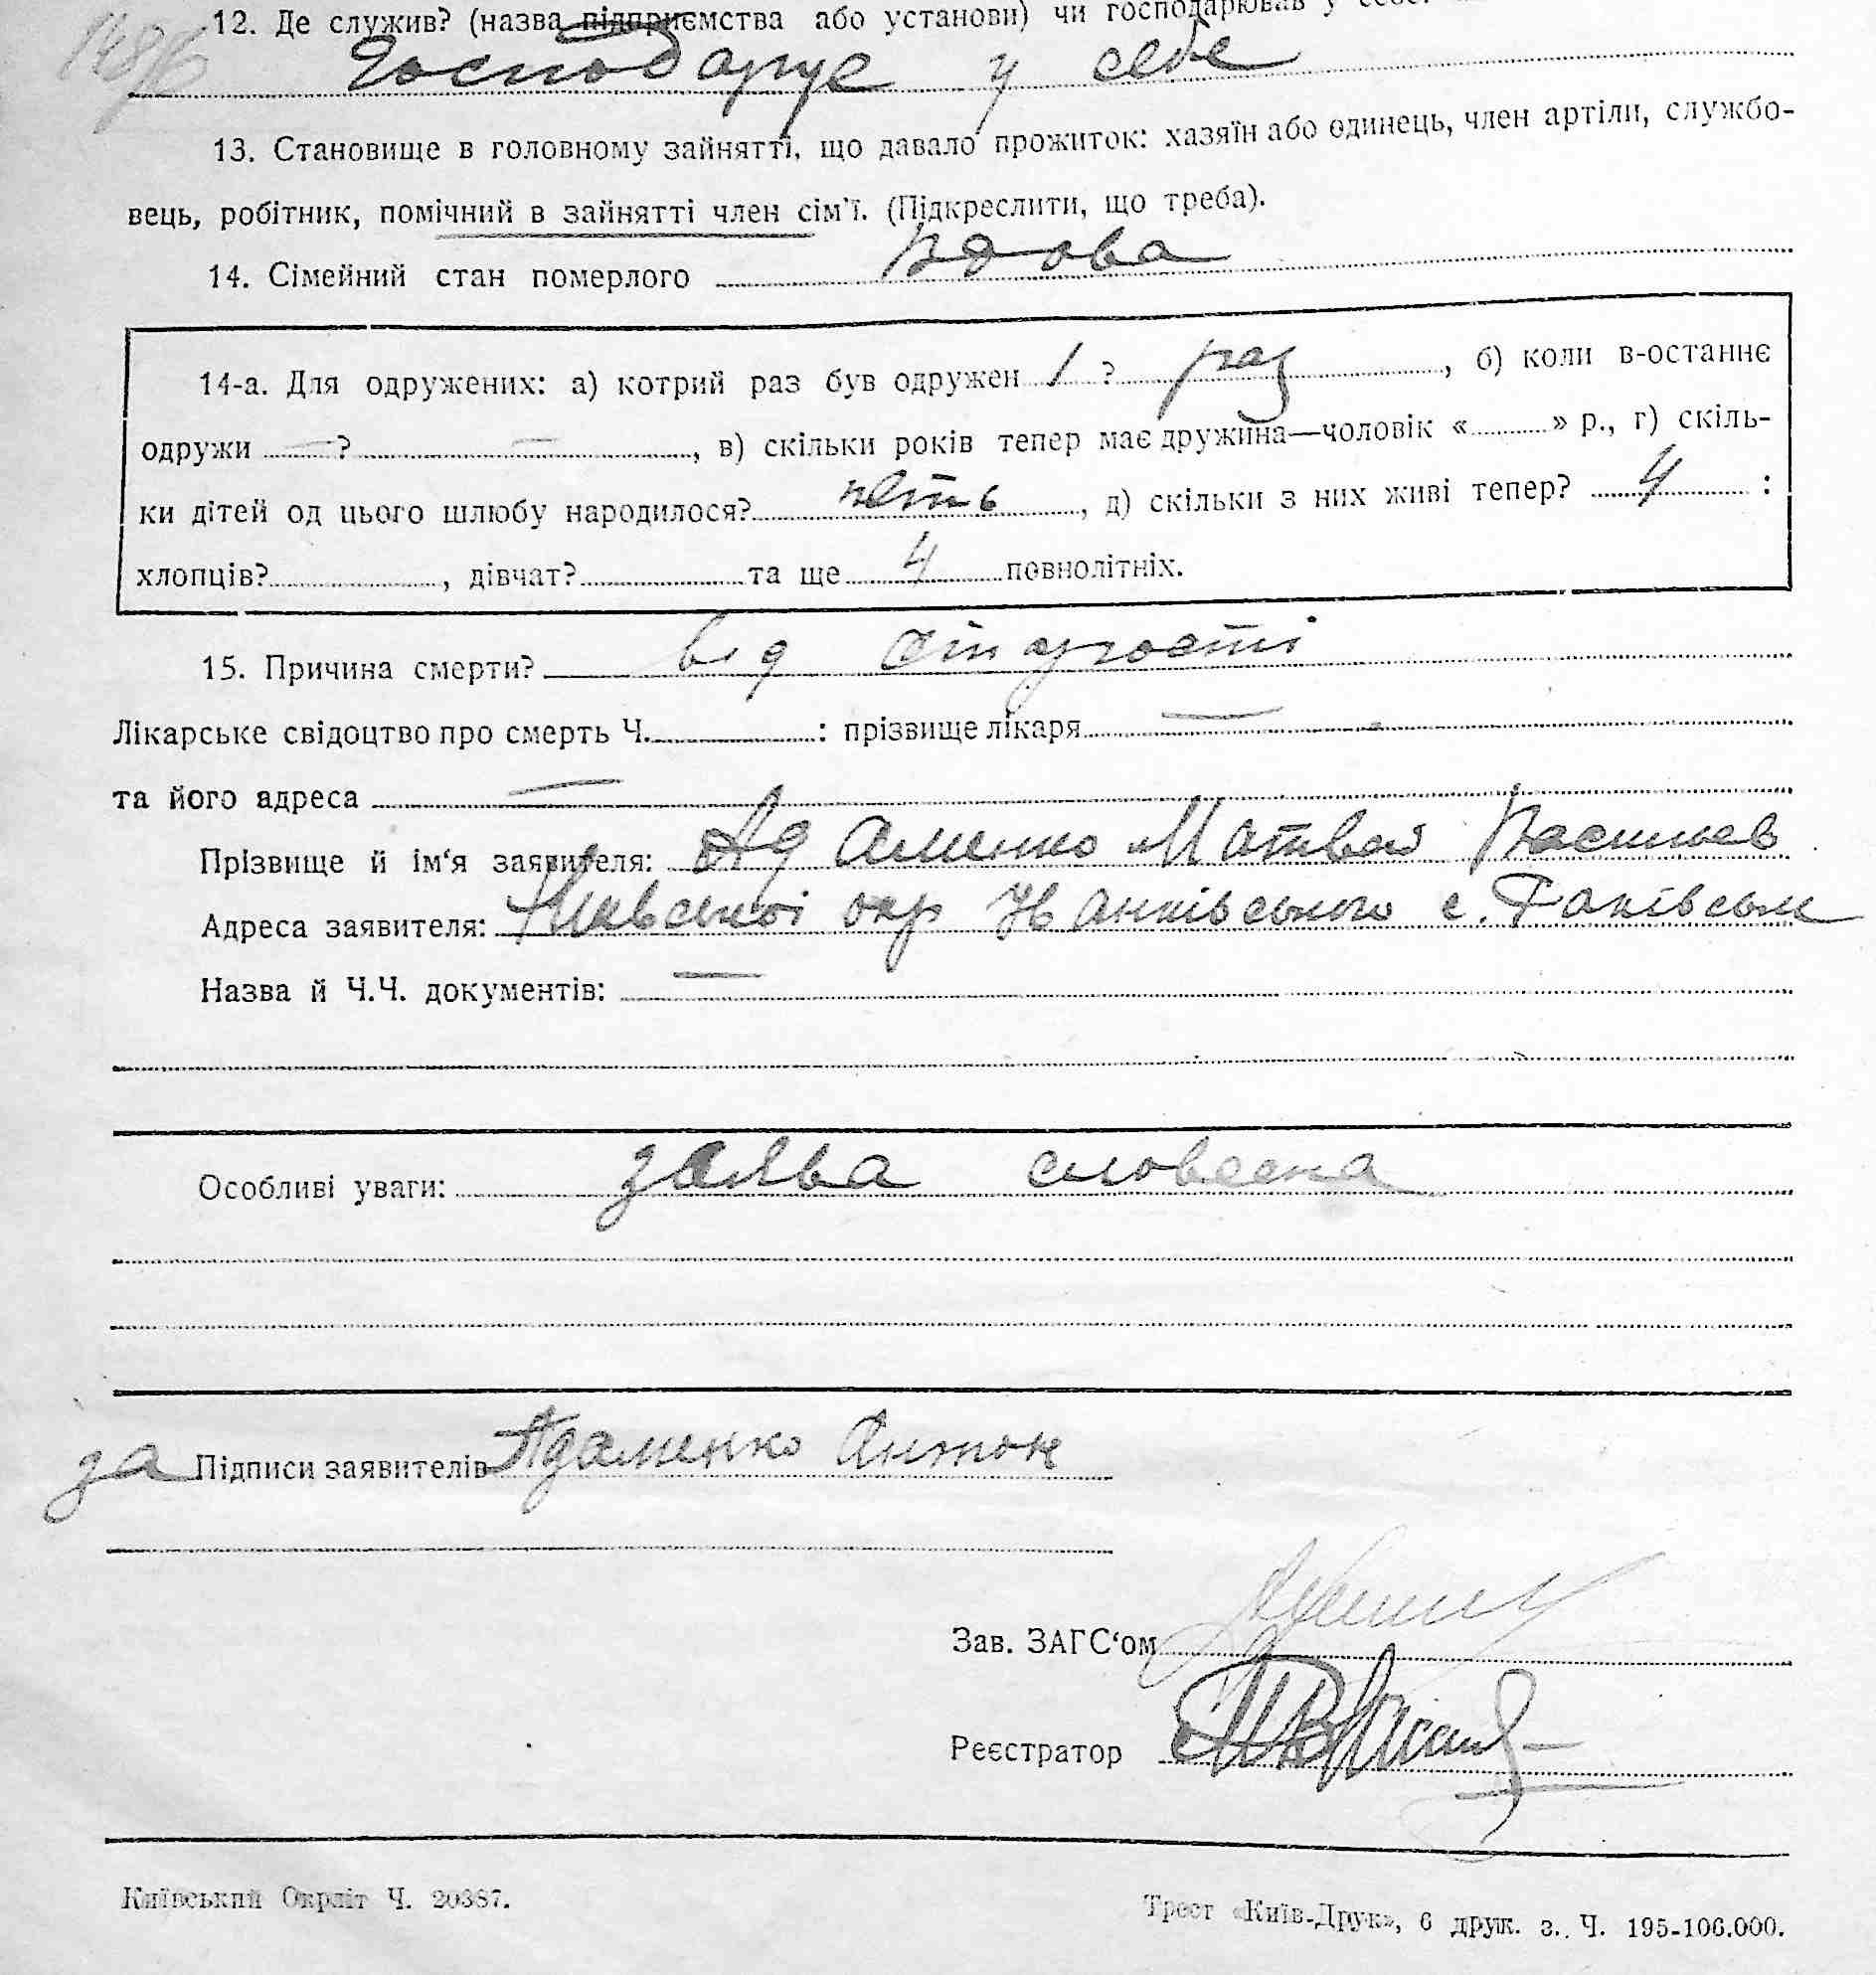 148/6
12. Де служив? (назва підприємства або установи) чи господарював у себе?
Господарує у себе
13. Становище в головному зайнятті, що давало прожиток: хазяїн або одинець, член артіли, службо-
вець, робітник, помічний в зайнятті член сім'ї. (Підкреслити, що треба).
14. Сімейний стан померлого Вдова
14-а. Для одружених: а) котрий раз був одружен 1 ? раз, б) коли в-останнє
одружи — ? —, в) скільки років тепер має дружина—чоловік « » р., г) скіль-
ки дітей од цього шлюбу народилося? петь, д) скільки з них живі тепер? 4 :
хлопців? , дівчат? та ще 4 повнолітніх.
15. Причина смерти? від старости
Лікарське свідоцтво про смерть Ч. : прізвище лікаря —
та його адреса —
Прізвище й ім‘я заявителя: Адаменко Матвей
Адреса заявителя: окр с.
Назва й Ч.Ч. документів: —
Особливі уваги: заява словесна
за Підписи заявителів Адаменко Антон
Зав. ЗАГС‘ом
Реєстратор
Київський Окрліт Ч. 20387.
Трест «Київ-Друк», 6 друк. з. Ч. 195-106.000.